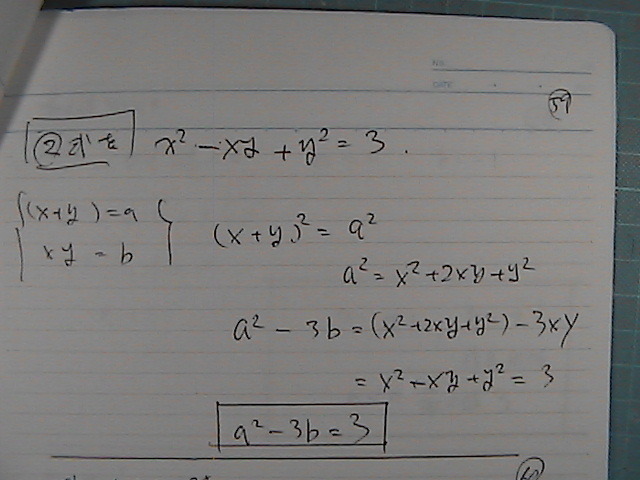 NO.
DATE
59
②式を x² - xy + y² = 3.
{(x+y) = a (x+y)² = a²
xy = b
a² = x² + 2xy + y²
a² - 3b = (x² + 2xy + y²) - 3xy
= x² - xy + y² = 3
a² - 3b = 3
60